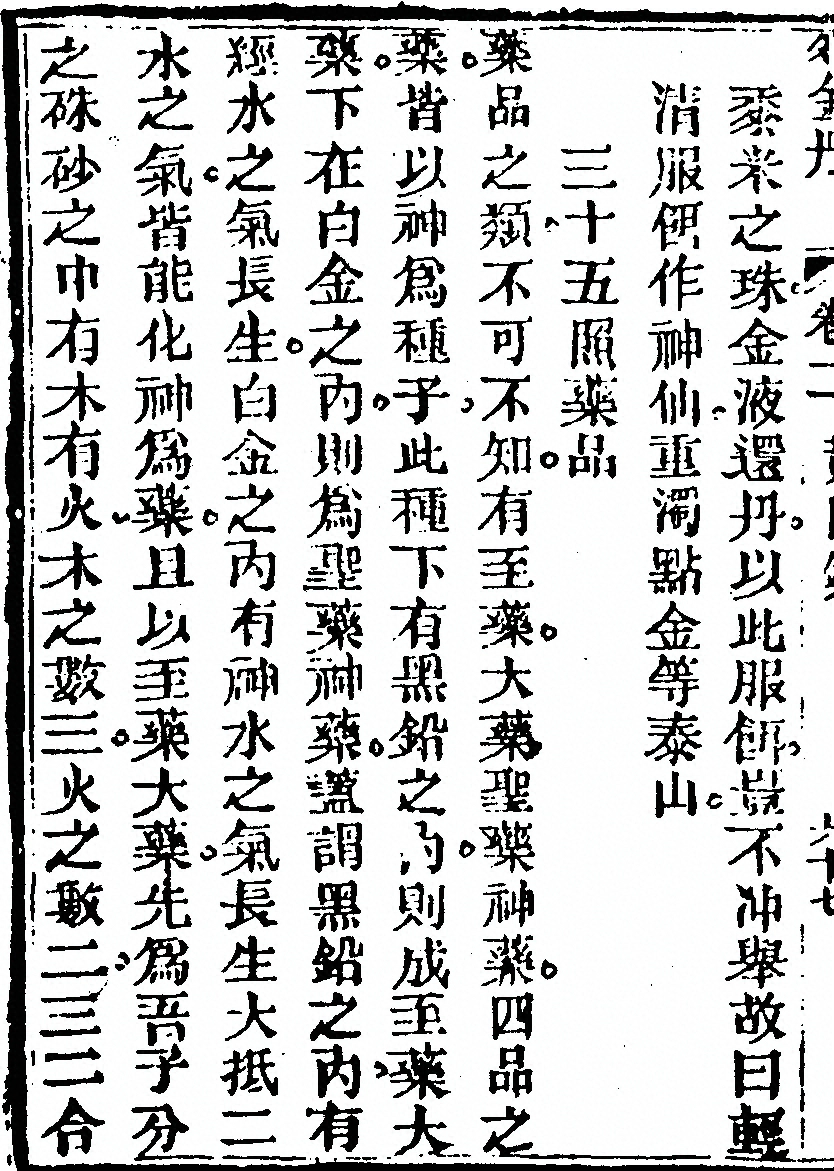 黍米之珠金液還丹以此服餌豈不冲舉故曰輕
清服餌作神仙重濁點金等泰山
三十五照藥品
藥品之類不可不知有至藥大藥聖藥神藥四品之
藥皆以神爲種子此種下有黑鉛之內則成至藥大
藥下在白金之內則爲聖藥神藥蓋謂黑鉛之內有
經水之氣長生白金之內有神水之氣長生大抵二
水之氣皆能化神爲藥且以至藥大藥先爲吾子分
之硃砂之中有木有火木之數三火之數二三二合